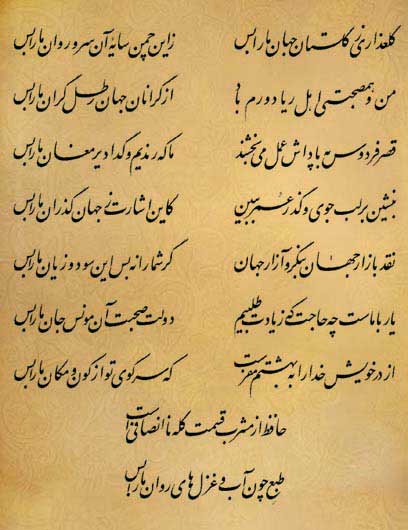 گلعذاری ز گلستان جهان ما را بس زین چمن سایهٔ آن سرو روان ما را بس
من و همصحبتی اهل ریا دورم باد از گرانان جهان رطل گران ما را بس
قصر فردوس به پاداش عمل می‌بخشند ما که رندیم و گدا دیر مغان ما را بس
بنشین بر لب جوی و گذر عمر ببین کاین اشارت ز جهان گذران ما را بس
نقد بازار جهان بنگر و آزار جهان گر شما را نه بس این سود و زیان ما را بس
یار با ماست چه حاجت که زیادت طلبیم دولت صحبت آن مونس جان ما را بس
از در خویش خدا را به بهشتم مفرست که سر کوی تو از کون و مکان ما را بس
حافظ از مشرب قسمت گله ناانصافیست
طبع چون آب و غزل‌های روان ما را بس